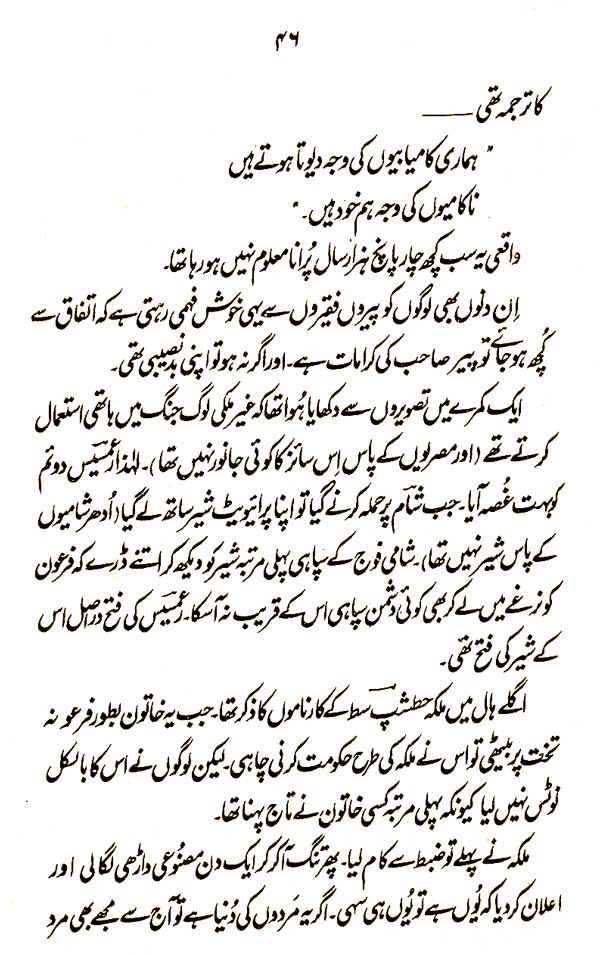 ۴۶
کا ترجمہ تھی ——
"ہماری کامیابیوں کی وجہ دیوتا ہوتے ہیں
ناکامیوں کی وجہ ہم خود ہیں۔"
واقعی یہ سب کچھ چار پانچ ہزار سال پُرانا معلوم نہیں ہو رہا تھا۔
اِن دنوں بھی لوگوں کو پیروں فقیروں سے یہی خوش فہمی رہتی ہے کہ اتفاق سے
کُچھ ہو جائے تو پیر صاحب کی کرامات ہے۔ اور اگر نہ ہو تو اپنی بدنصیبی تھی۔
ایک کمرے میں تصویروں سے دکھایا ہُوا تھا کہ غیر ملکی لوگ جنگ میں ہاتھی استعمال
کرتے تھے (اور مصریوں کے پاس اِس سائز کا کوئی جانور نہیں تھا)۔ لہٰذا رعمسیس دوئم
کو بہت غُصہ آیا۔ جب شام پر حملہ کرنے گیا تو اپنا پرائیویٹ شیر ساتھ لے گیا (اُدھر شامیوں
کے پاس شیر نہیں تھا)۔ شامی فوج کے سپاہی پہلی مرتبہ شیر کو دیکھ کر اتنے ڈرے کہ فرعون
کو نرغے میں لے کر بھی کوئی دُشمن سپاہی اس کے قریب نہ آسکا۔ رعمسیس کی فتح دراصل اس
کے شیر کی فتح تھی۔
اگلے ہال میں ملکہ حطشپ سط کے کارناموں کا ذکر تھا۔ جب یہ خاتون بطور فرعونہ
تخت پر بیٹھی تو اس نے ملکہ کی طرح حکومت کرنی چاہی۔ لیکن لوگوں نے اس کا بالکل
نوٹس نہیں لیا کیونکہ پہلی مرتبہ کسی خاتون نے تاج پہنا تھا۔
ملکہ نے پہلے تو ضبط سے کام لیا۔ پھر تنگ آکر ایک دن مصنُوعی داڑھی لگا لی اور
اعلان کر دیا کہ یُوں ہے تو یُوں ہی سہی۔ اگر یہ مَردوں کی دُنیا ہے تو آج سے مجھے بھی مرد